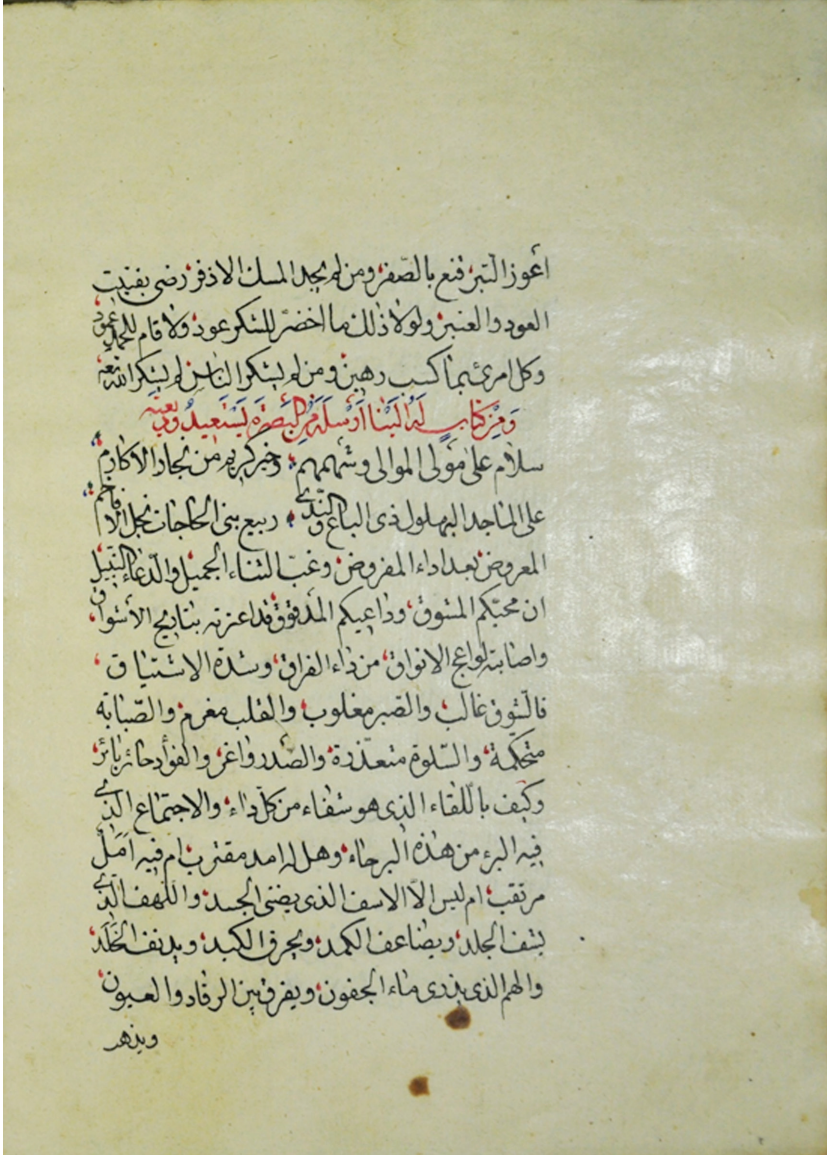 اعوز التبر قنع بالصّفر ومن لم يجد المسك الاذفر رضى بفتيت
العود والعنبر ولولا ذلك ما اخضرّ للشكر عود ولا قام للحمد عمود
وكل امرئ بما كسب رهين ومن لم يشكر الناس لم يشكر الله
ومن كتاب له الينا أرسله من البصرة يستعيد
سلام على مولى الموالى وشهمهم وخير كريم من نجاد الاكارم
على الماجد البهلول ذى الباع والندى ربيع بنى الحاجات نجل الافاخم
المعروض بعد اداء المفروض وغبّ الثناء الجميل والدعاء النبيل
ان محبّكم المشوق وداعيكم قد اعزته بتاريح الأشواق
واصابته لواعج الاتواق من داء الفراق وشدة الاشتياق
فالشوق غالب والصبر مغلوب والقلب مغرم والصّبابة
متحكّمة والسّلوة متعذّرة والصّدر واغر والفوأد حائر بائر
وكيف باللّقاء الذى هو شفاء من كلّ داء والاجتماع الذى
فيه البرء من هذه البرحاء وهل له امد مقترب ام فيه امل
مرتقب ام ليس الّا الاسف الذى يضنى الجسد واللهف الذى
يشف الجلد ويضاعف الكمد ويحرق الكبد ويدنف الخلد
والهم الذى يذرى ماء الجفون ويفرق بين الرقاد والعيون
ويذهر